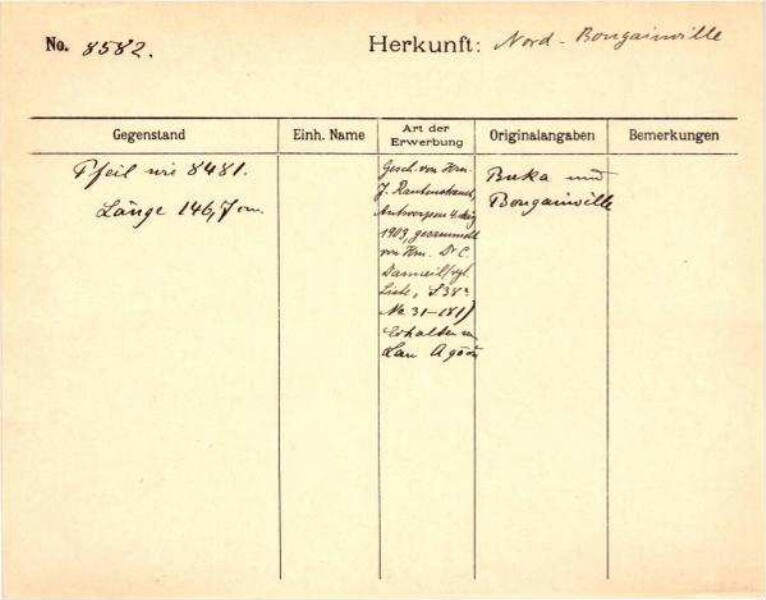 No. 8582.
Herkunft: Nord-Bougainville
Gegenstand
Einh. Name
Art der Erwerbung
Originalangaben
Bemerkungen
Pfeil wie 8481.
Länge 146,7 cm.
Gesch. von Hrn.
J. Rautenstrauch,
Antwerpen 4. Aug
1903, gesammelt
von Hrn. Dr C.
Danneil (vgl.
Liste, S 38a
No 31-181)
Erhalten
Lau
Buka und
Bougainville